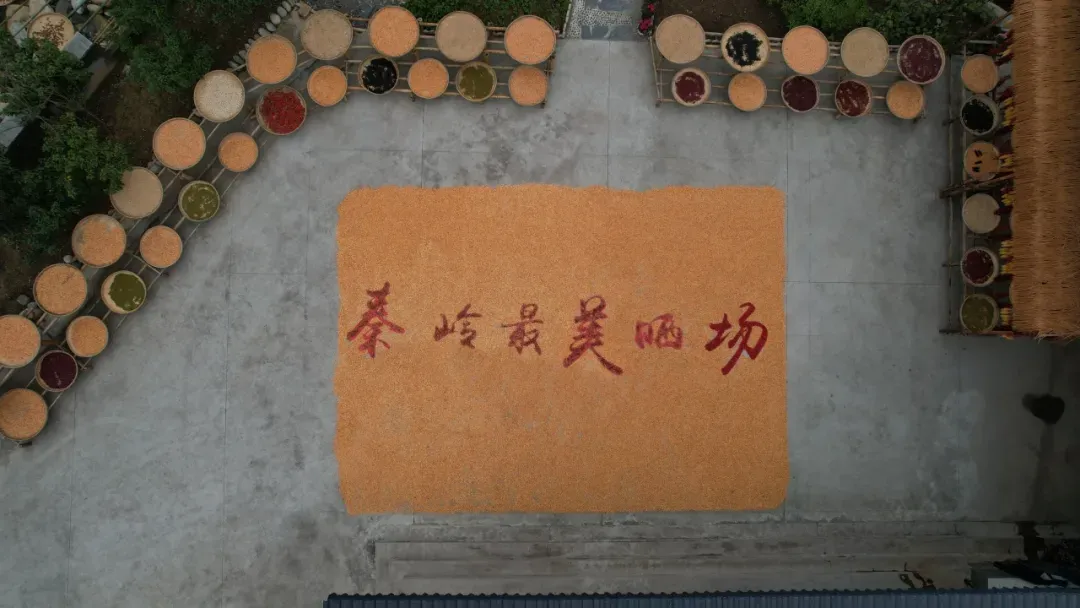 秦岭最美晒场